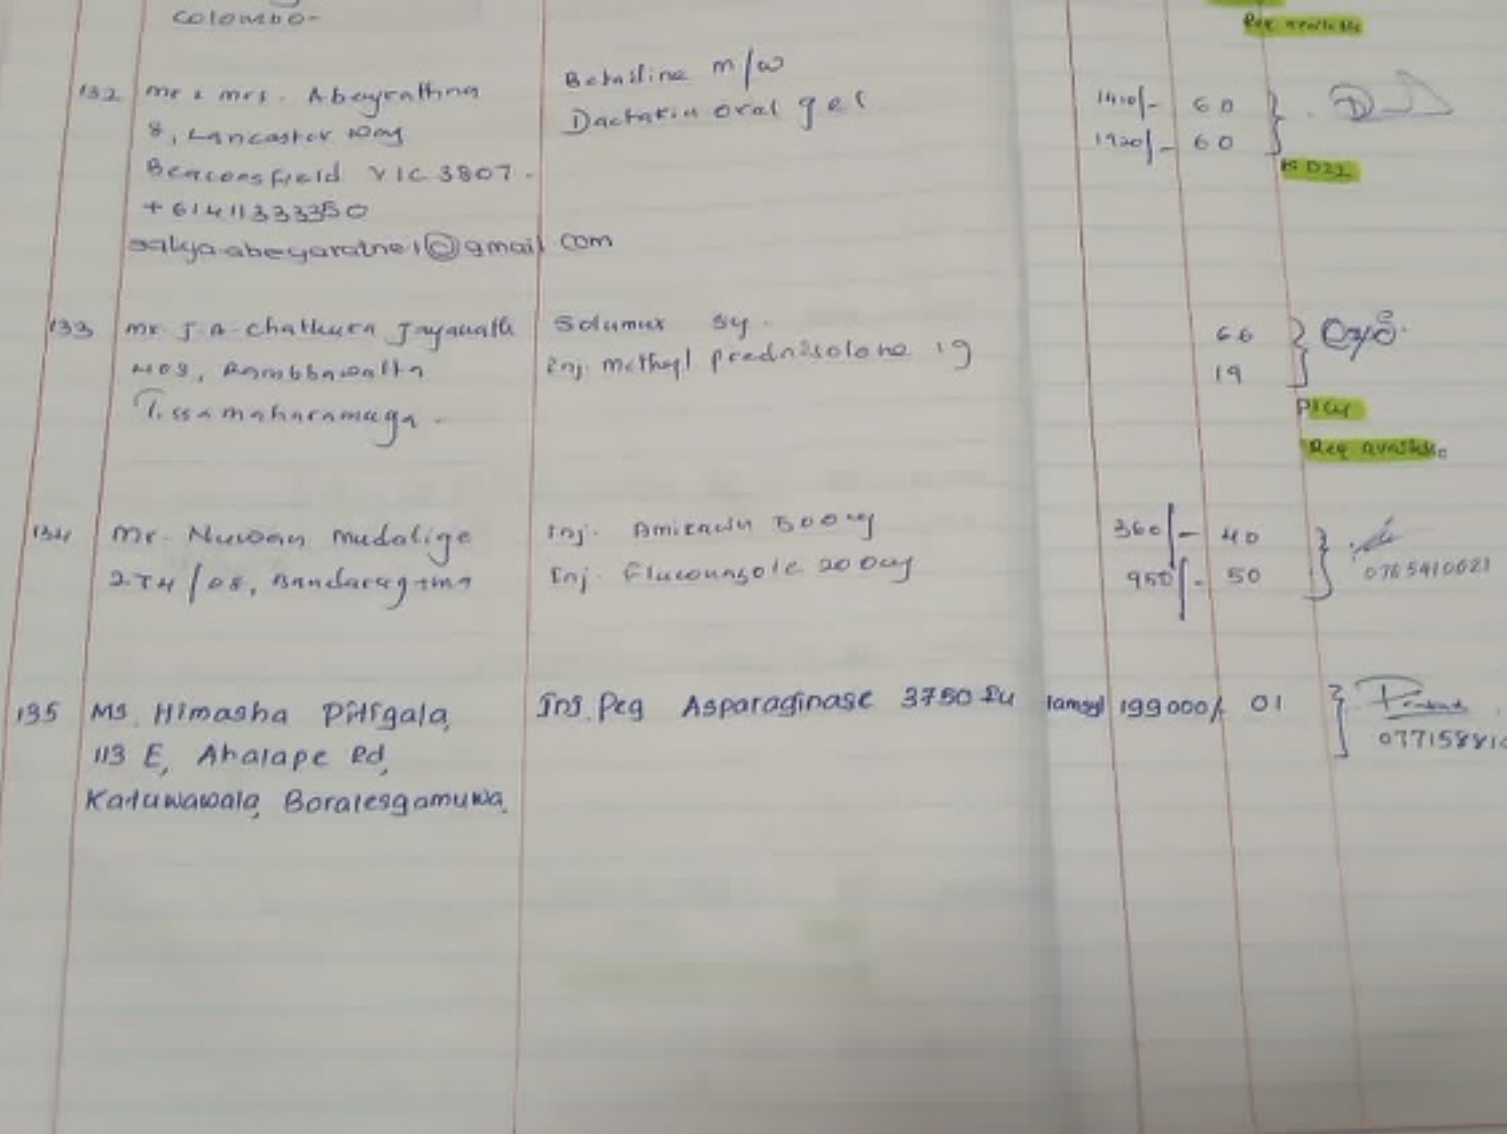 colombo-
Req available
132 mr & mrs. Abeyrathna Betadine m/w 1410/- 60
8, Lancaster way Dactarin oral gel 1920/- 60
Beaconsfield VIC 3807.
+61411333350
@gmail.com
133 mr J.A. Chathura Jayanath Solumux sy. 66
409, inj. methyl prednisolone 1g 19
Tissamaharamaga.
Req available
134 Mr. Nuwan mudalige Inj. Amikacin 500mg 360/- 40
274/08, Bandaragama Inj. Fluconazole 200mg 950/- 50
0765410021
135 Ms. Himasha Pitigala, Inj. Peg Asparaginase 3750 Iu 199000/- 01
113 E, Ahalape Rd, 07715881
Katuwawala, Boralesgamuwa.